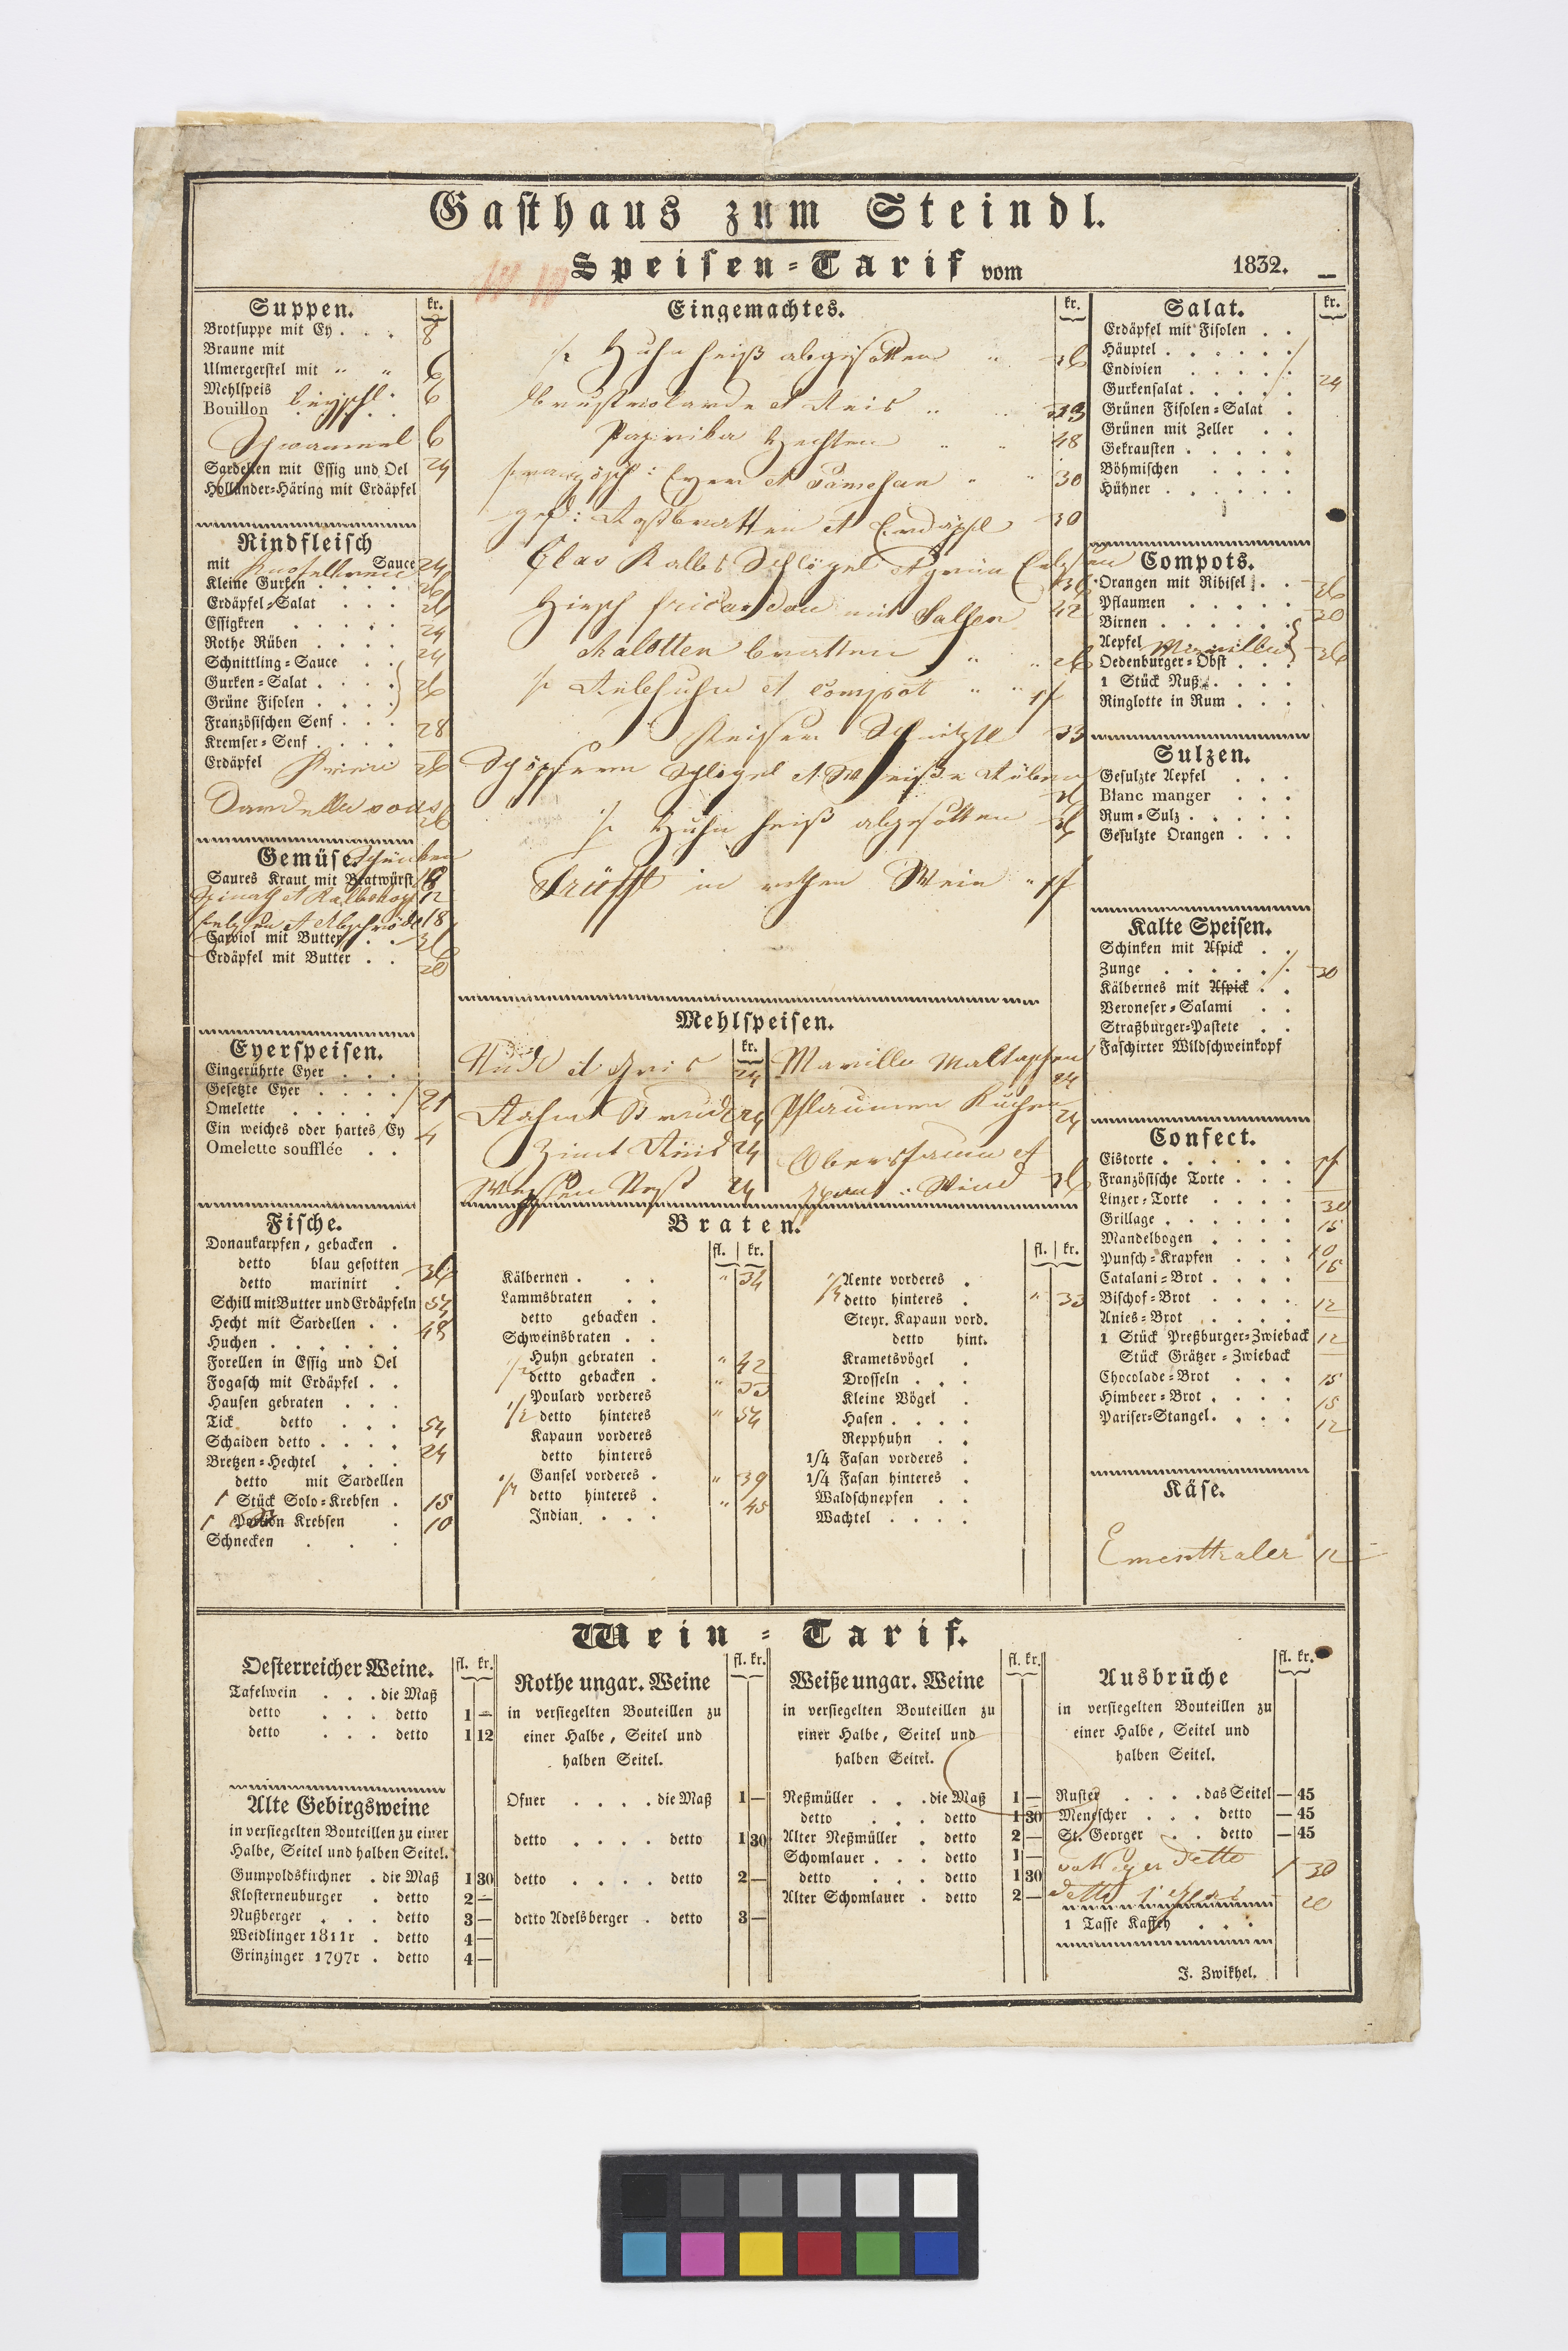 Gasthaus zum Steindl.
Speisen-Tarif vom 1832.
Suppen. kr.
Brotsuppe mit Ey . . . 8
Braune mit
Ulmergerstel mit " " 6
Mehlspeis 6
Bouillon
6
Sardellen mit Essig und Oel 24
Holländer-Häring mit Erdäpfel
Rindfleisch
mit Sauce 24
Kleine Gurken . . . . 26
Erdäpfel-Salat . . . 26
Essigkren . . . . . 24
Rothe Rüben . . . . 24
Schnittling-Sauce . .
Gurken-Salat . . . . 26
Grüne Fisolen . . . .
Französischen Senf . . . 28
Kremser-Senf . . . .
Erdäpfel 26
26
Gemüse.
Saures Kraut mit Bratwürst 18
Spinath et 12
18
Carviol mit Butter . . 36
Erdäpfel mit Butter . . 20
Eyerspeisen.
Eingerührte Eyer . . .
Gesetzte Eyer . . . . 21
Omelette . . . . .
Ein weiches oder hartes Ey 4
Omelette soufflée . .
Fische.
Donaukarpfen, gebacken .
detto blau gesotten 36
detto marinirt .
Schill mit Butter und Erdäpfeln 54
Hecht mit Sardellen . . 48
Huchen . . . . . .
Forellen in Essig und Oel
Fogasch mit Erdäpfel . .
Hausen gebraten . . .
Tick detto . . . 54
Schaiden detto . . . . 24
Bretzen-Hechtel . . .
detto mit Sardellen
1 Stück Solo-Krebsen . 15
1 Portion Krebsen . 10
Schnecken . . .
Eingemachtes. kr.
Huhn heiß abgesotten " 36
et Reis " " 33
Paprika Hechten " " 48
Eyer et Parmesan " " 30
Rostbratten et Erdäpfl 30
Glas Kalbs Schlögel 36
Hirsch fricandou mit Salsen 42
bratten " " 26
Rebhuhn et Compott " " 1f
Keiser Schnitzl 33
Schöpsern Schlögel et Weiße Rüben 26
Huhn heiß abgesotten 36
Trüffl in rothen Wein " 1f
Mehlspeisen.
kr.
24
Rahm Strudl 24
Zimt 24
24
Marille
24
Pflaumen Kuchen 24
Obersfaum et
Wind 36
Braten.
fl. kr.
Kälbernen . . . " 34
Lammsbraten . .
detto gebacken .
Schweinsbraten . .
1/2 Huhn gebraten . " 42
detto gebacken . " 33
1/2 Poulard vorderes
detto hinteres " 54
Kapaun vorderes
detto hinteres
1/4 Gansel vorderes . " 39
detto hinteres . " 45
Indian . . .
fl. kr.
1/4 Aente vorderes .
detto hinteres . " 33
Steyr. Kapaun vord.
detto hint.
Krametsvögel .
Drosseln . . .
Kleine Vögel .
Hasen . . . .
Repphuhn . .
1/4 Fasan vorderes .
1/4 Fasan hinteres .
Waldschnepfen . .
Wachtel . . . .
Salat. kr.
Erdäpfel mit Fisolen . .
Häuptel . . . . . .
Endivien . . . . .
Gurkensalat . . . . . 24
Grünen Fisolen-Salat .
Grünen mit Zeller . .
Gekrausten . . . . .
Böhmischen . . . .
Hühner . . . . . .
Compots.
Orangen mit Ribisel . . 36
Pflaumen . . . . . 30
Birnen . . . . . .
Aepfel Marillen
Oedenburger-Obst . . . 36
1 Stück Nuß . . . .
Ringlotte in Rum . . .
Sulzen.
Gesulzte Aepfel . . .
Blanc manger . . .
Rum-Sulz . . . . .
Gesulzte Orangen . . .
Kalte Speisen.
Schinken mit Aspick . .
Zunge . . . . . . 30
Kälbernes mit Aspick . .
Veroneser-Salami . .
Straßburger-Pastete . .
Faschirter Wildschweinkopf
Confect.
Eistorte . . . . . . 1f
Französische Torte . . .
Linzer-Torte . . . . 30
Grillage . . . . . . 15
Mandelbogen . . . .
Punsch-Krapfen . . . 10
Catalani-Brot . . . . 15
Bischof-Brot . . . .
Anies-Brot . . . . 12
1 Stück Preßburger-Zwieback 12
Stück Grätzer-Zwieback
Chocolade-Brot . . . 15
Himbeer-Brot . . . . 15
Pariser-Stangel . . . . 12
Käse.
Ementhaler 12
Wein-Tarif.
Oesterreicher Weine. fl. kr.
Tafelwein . . . die Maß
detto . . . detto 1 —
detto . . . detto 1 12
Alte Gebirgsweine
in versiegelten Bouteillen zu einer
Halbe, Seitel und halben Seitel.
Gumpoldskirchner . die Maß 1 30
Klosterneuburger . detto 2 —
Nußberger . . . detto 3 —
Weidlinger 1811r . detto 4 —
Grinzinger 1797r . detto 4 —
Rothe ungar. Weine fl. kr.
in versiegelten Bouteillen zu
einer Halbe, Seitel und
halben Seitel.
Ofner . . . . die Maß 1 —
detto . . . . detto 1 30
detto . . . . detto 2 —
detto Adelsberger . detto 3 —
Weiße ungar. Weine fl. kr.
in versiegelten Bouteillen zu
einer Halbe, Seitel und
halben Seitel.
Neßmüller . . . die Maß 1 —
detto . . . detto 1 30
Alter Neßmüller . detto 2 —
Schomlauer . . . detto 1 —
detto . . . detto 1 30
Alter Schomlauer . detto 2 —
Ausbrüche fl. kr.
in versiegelten Bouteillen zu
einer Halbe, Seitel und
halben Seitel.
Ruster . . . . das Seitel — 45
Menescher . . . detto — 45
St. Georger . . detto — 45
detto 1 30
detto 20
1 Tasse Kaffeh . . .
J. Zwikhel.